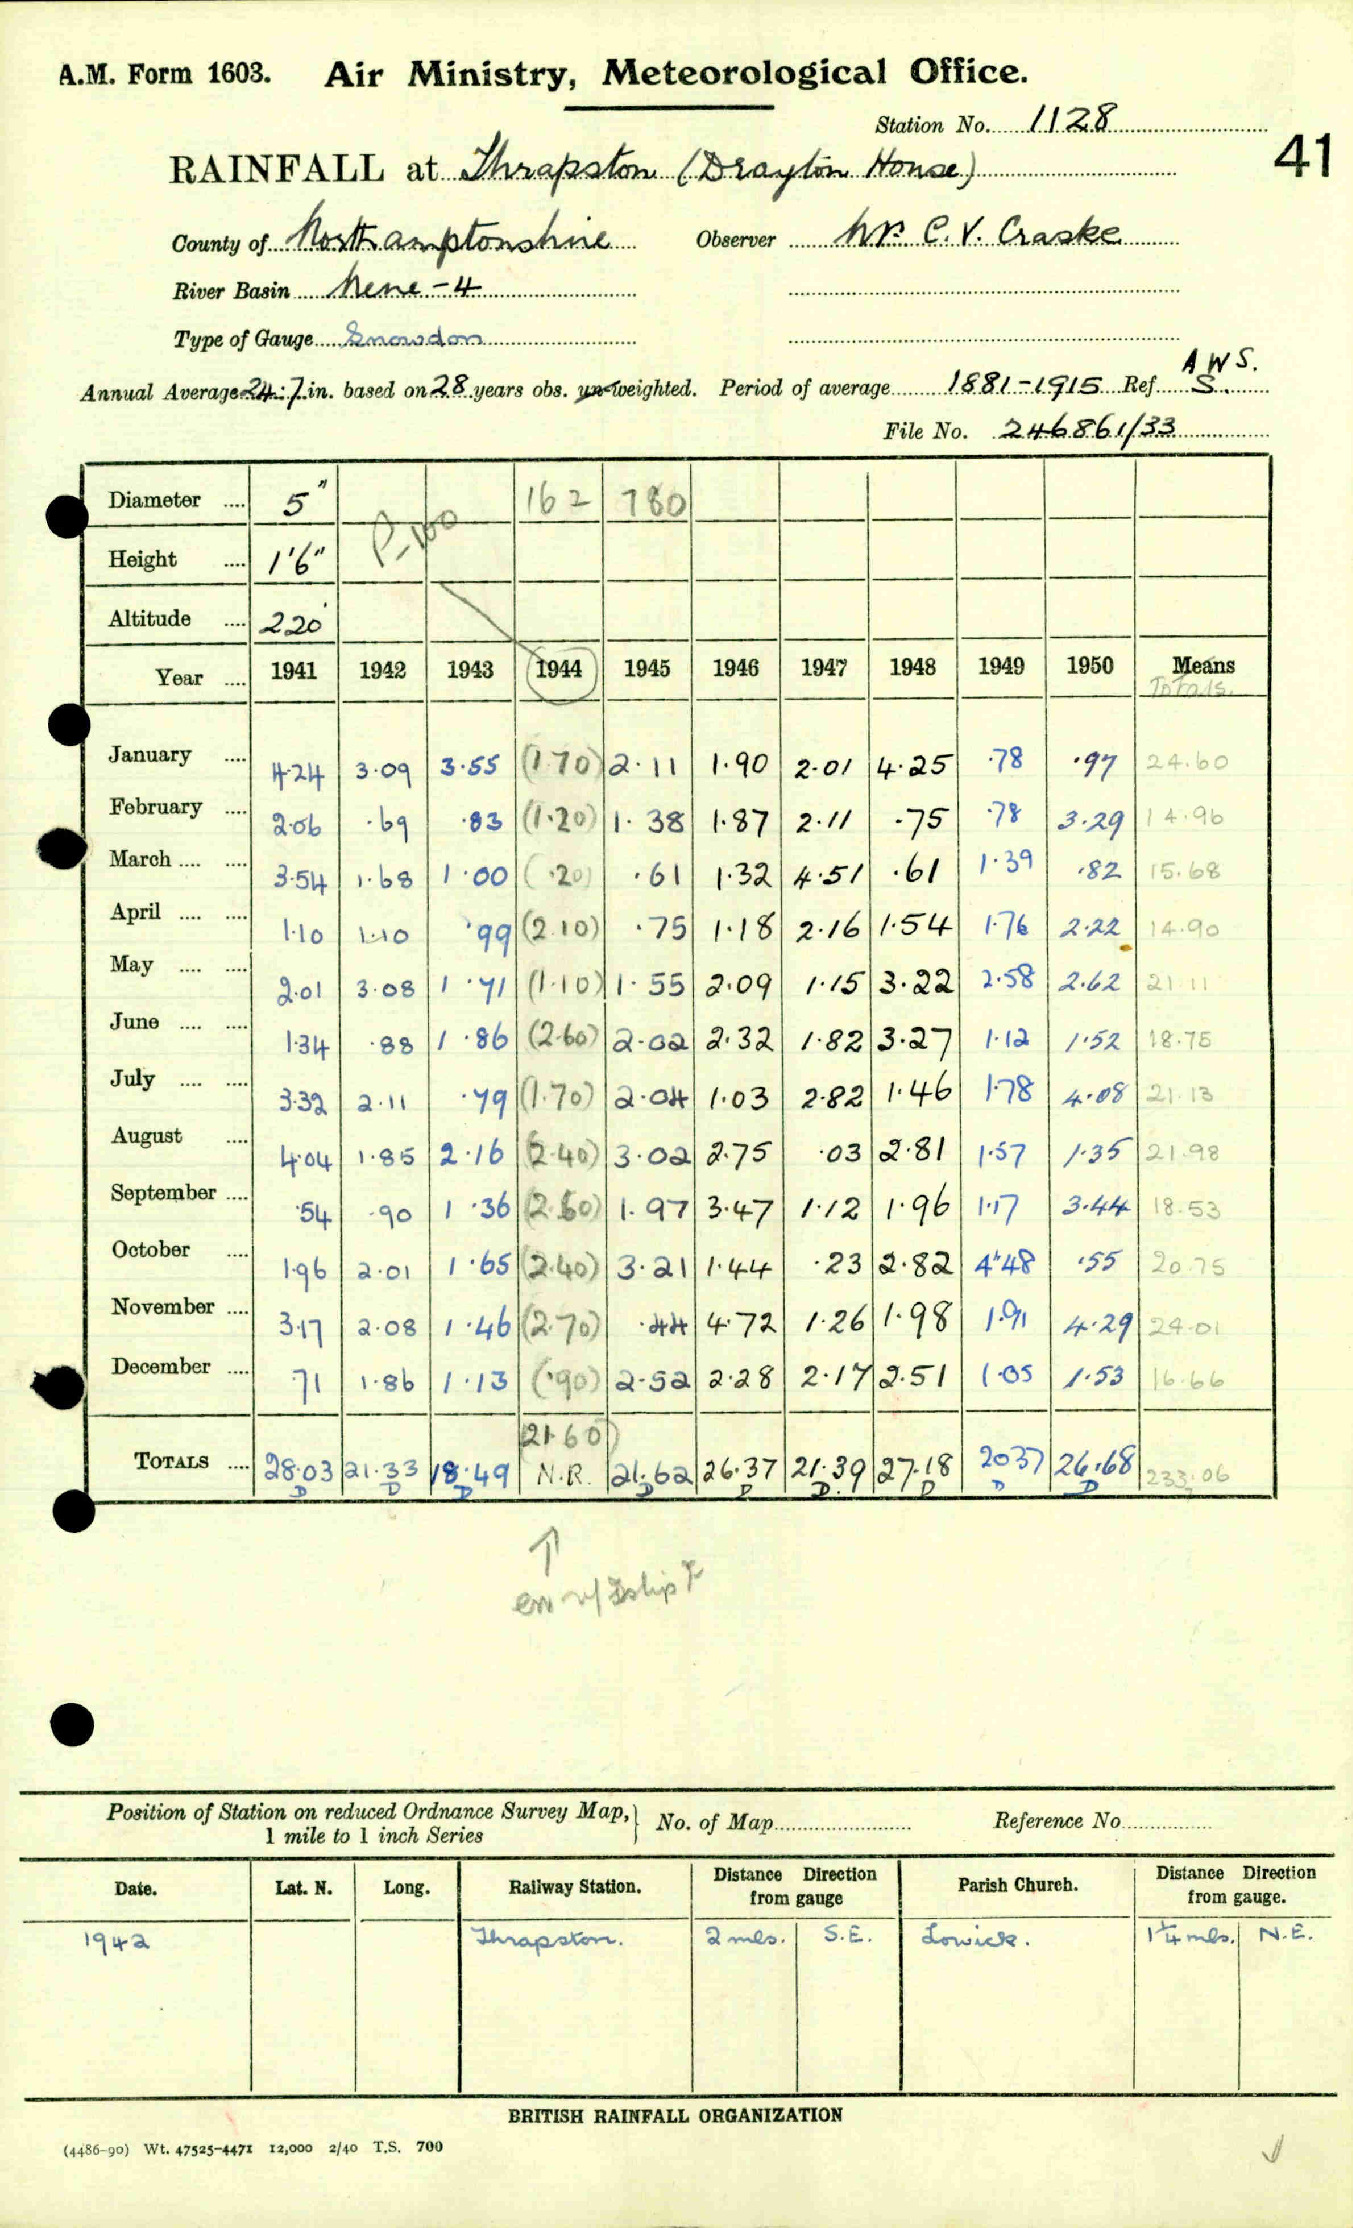 A.M. Form 1603. Air Ministry, Meteorological Office.
Station No. 1128
41
RAINFALL at Thrapston (Drayton House)
County of Northamptonshire Observer Mr C. V. Craske
River Basin Nene - 4
Type of Gauge Snowdon
A W S.
Annual Average 24.7 in. based on 28 years obs. un-weighted. Period of average 1881-1915 Ref. S.
File No. 246861/33
Diameter .... 5" 162 780
P-100
Height .... 1'6"
Altitude .... 220'
Year .... 1941 1942 1943 1944 1945 1946 1947 1948 1949 1950 Means
Totals.
January .... 4.24 3.09 3.55 (1.70) 2.11 1.90 2.01 4.25 .78 .97 24.60
February .... 2.06 .69 .83 (1.20) 1.38 1.87 2.11 .75 .78 3.29 14.96
March .... .... 3.54 1.68 1.00 (.20) .61 1.32 4.51 .61 1.39 .82 15.68
April .... .... 1.10 1.10 .99 (2.10) .75 1.18 2.16 1.54 1.76 2.22 14.90
May .... .... 2.01 3.08 1.71 (1.10) 1.55 2.09 1.15 3.22 2.58 2.62 21.11
June .... .... 1.34 .88 1.86 (2.60) 2.02 2.32 1.82 3.27 1.12 1.52 18.75
July .... .... 3.32 2.11 .79 (1.70) 2.04 1.03 2.82 1.46 1.78 4.08 21.13
August .... 4.04 1.85 2.16 (2.40) 3.02 2.75 .03 2.81 1.57 1.35 21.98
September .... .54 .90 1.36 (2.60) 1.97 3.47 1.12 1.96 1.17 3.44 18.53
October .... 1.96 2.01 1.65 (2.40) 3.21 1.44 .23 2.82 4.48 .55 20.75
November .... 3.17 2.08 1.46 (2.70) .44 4.72 1.26 1.98 1.91 4.29 24.01
December .... 71 1.86 1.13 (.90) 2.52 2.28 2.17 2.51 1.05 1.53 16.66
21.60)
TOTALS .... 28.03 21.33 18.49 N.R. 21.62 26.37 21.39 27.18 20.37 26.68 233.06
D D D D D D D D D
Position of Station on reduced Ordnance Survey Map, No. of Map Reference No
1 mile to 1 inch Series
Date. Lat. N. Long. Railway Station. Distance Direction from gauge Parish Church. Distance Direction from gauge.
1942 Thrapston. 2 mls. S.E. Lowick. 1¼ mls. N.E.
BRITISH RAINFALL ORGANIZATION
(4486-90) Wt. 47525-4471 12,000 2/40 T.S. 700